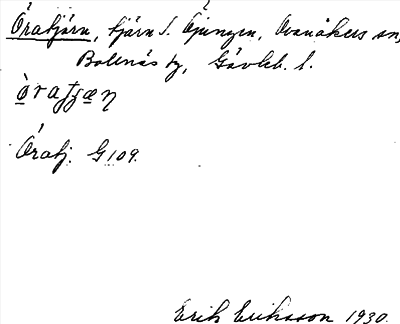 Öratjärn, tjärn S. Öjungen, Ovanåkers sn,
Bollnäs tg, Gävleb. l.
Öratj. G 109.
Erik Eriksson 1930.